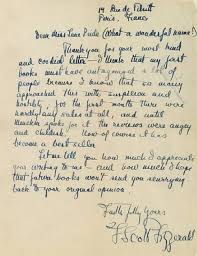 14 Rue de Tilsitt
Paris, France
Dear Miss Pude (What a wonderful name!)
Thank you for your most kind
and cordial letter — I think that my first
books must have antagonized a lot of
people because I know that so many
approached this with suspicion and
hostility, for the first month there were
hardly any sales at all, and until
Mencken spoke for it the reviews were angry
and childish. Now of course it has
become a best seller.
Let me tell you how much I appreciate
your writing to me and how much I hope
that future books won't send you scurrying
back to your original opinion.
Faithfully Yours
F Scott Fitzgerald